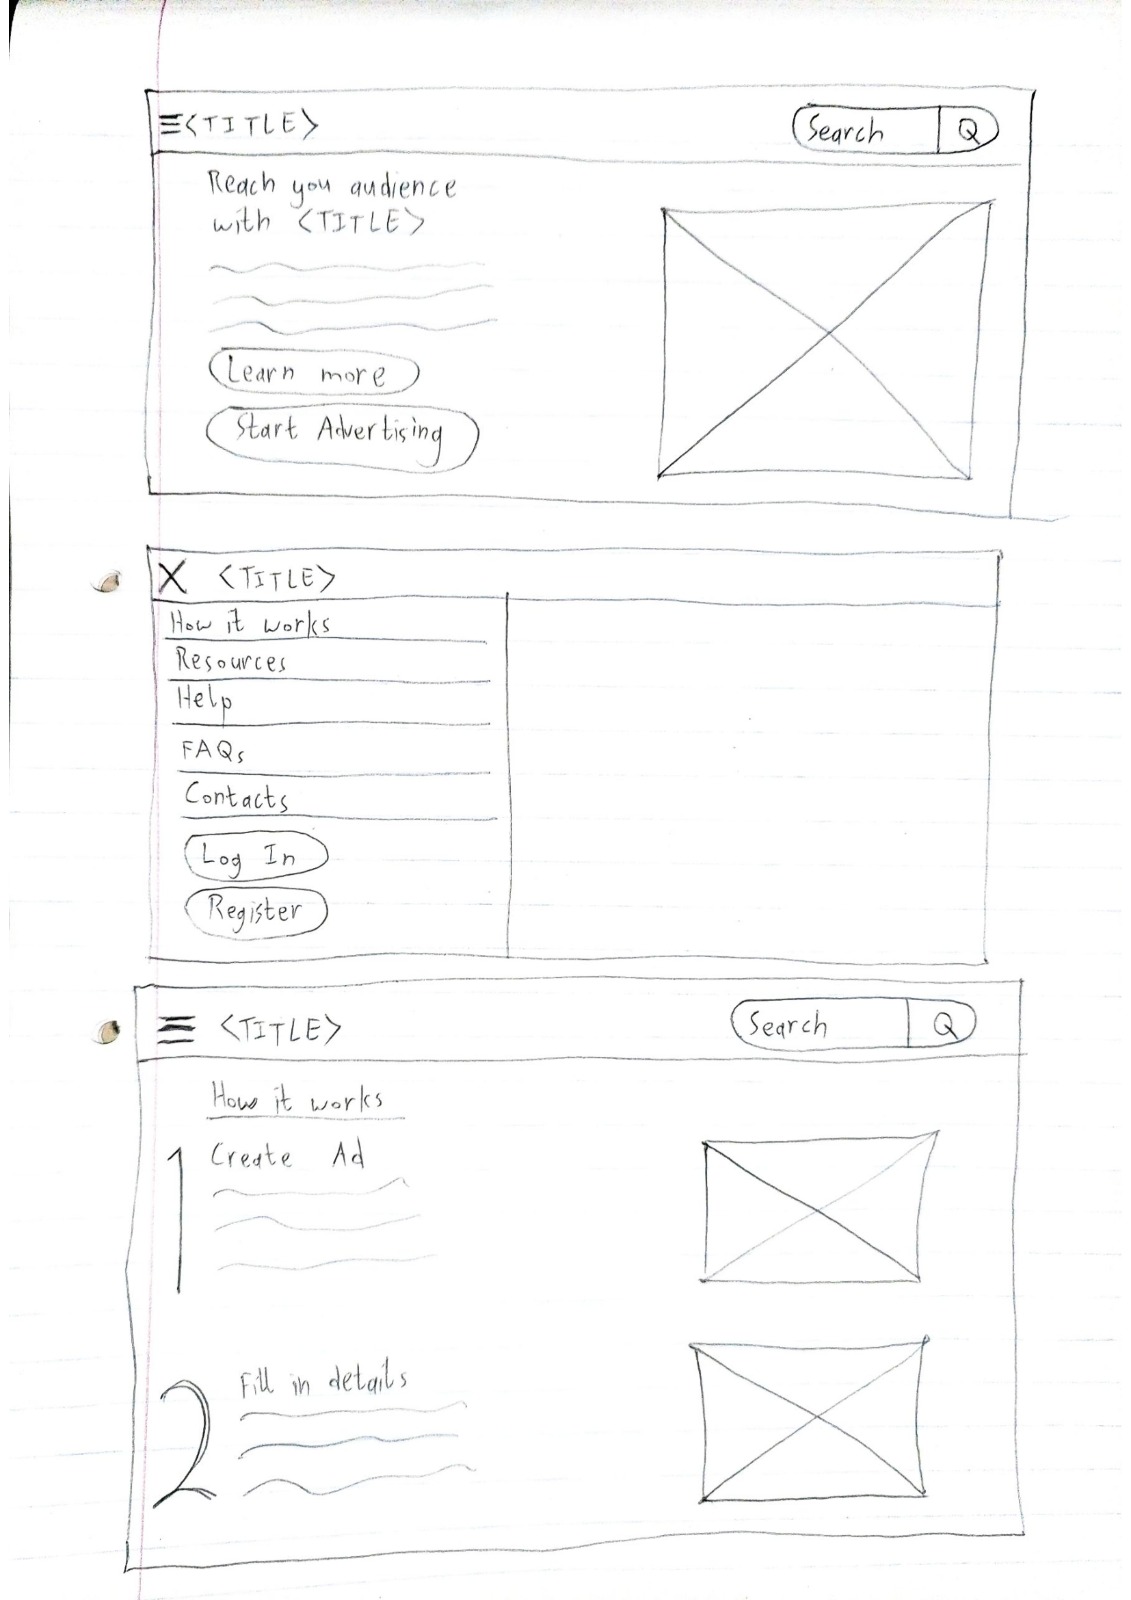 <TITLE>
Search
Reach you audience
with <TITLE>
Learn more
Start Advertising
X <TITLE>
How it works
Resources
Help
FAQs
Contacts
Log In
Register
<TITLE>
Search
How it works
1 Create Ad
2 Fill in details